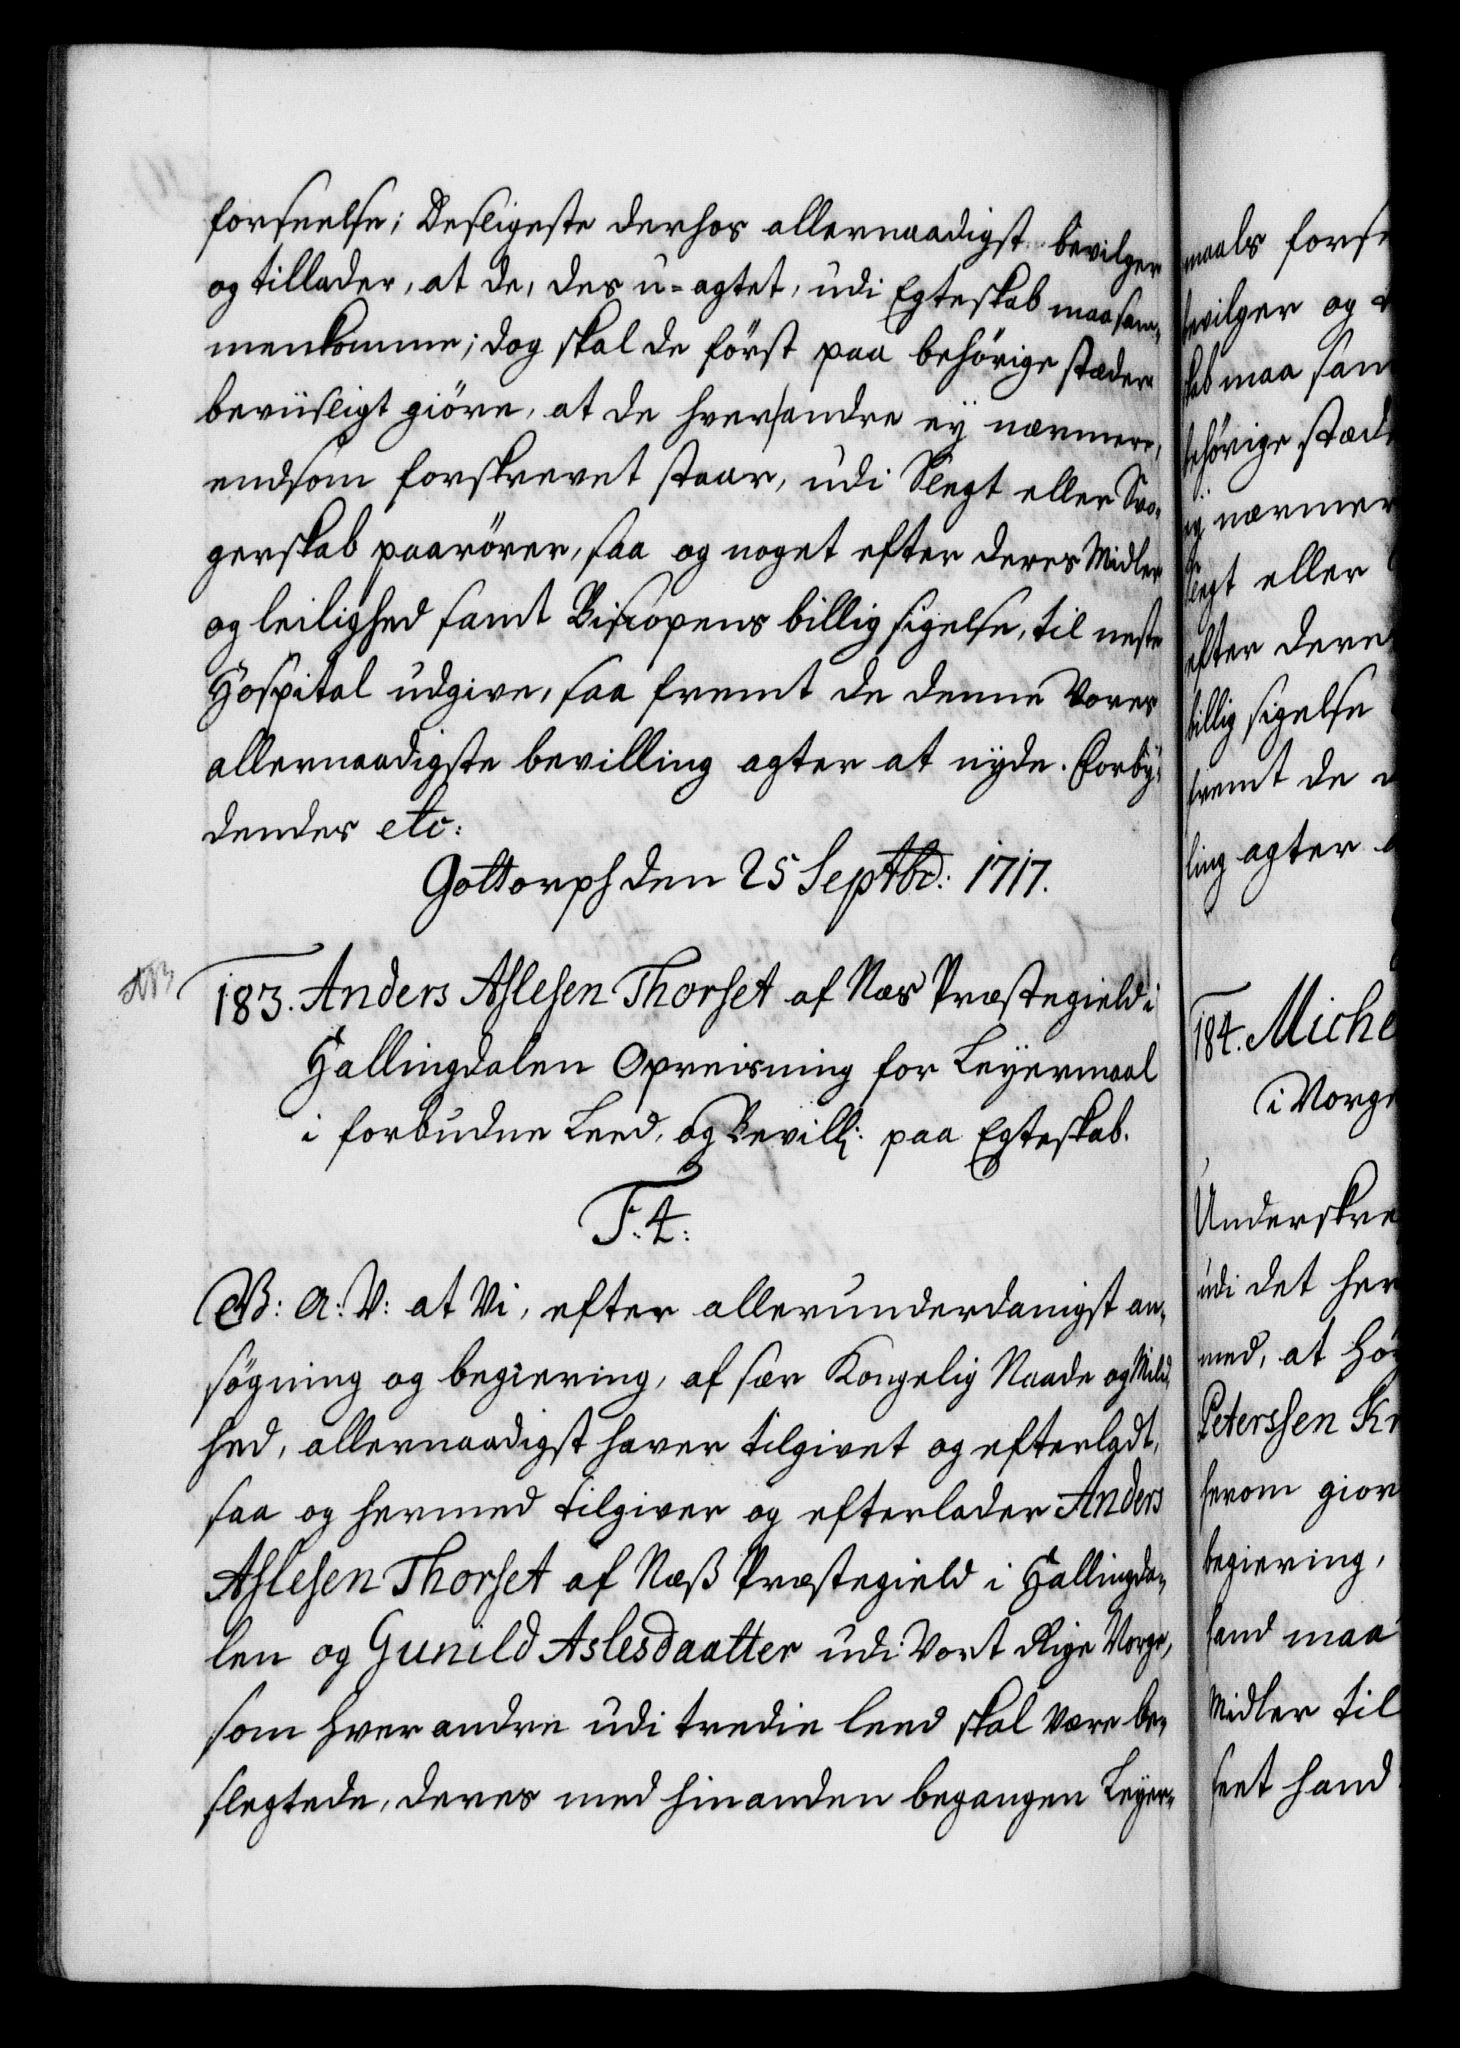 forseelse; Desligeste derhos allernaadigst bevilger
og tillader, at de, des u-agtet, udi Egteskab maa sam-
menkomme; dog skal de först paa behörige stæder
beviisligt giöre, at de hver andre ey nærmere,
end som forskrevet staar, udi Slegt eller Svo-
gerskab paarörer, saa og noget efter deres Midler
og leilighed samt Biscopens billig sigelse, til neste
Hospital udgive, saa fremt de denne Vores
allernaadigste bevilling agter at nyde. Forby-
dendes etc:
Gottorph den 25 Septbr: 1717.
NB
183. Anders Aslesen Thorset af Næs Præstegield i
Hallingdalen Opreisning for Leyermaal
i forbudne Leed, og Bevill: paa Egteskab.
F. 4:
G. A: V: at Vi, efter allerunderdanigst an-
sögning og begiering, af sær Kongelig Naade og Mild-
hed, allernaadigst haver tilgivet og efterladt,
saa og hermed tilgiver og efterlader Anders
Aslesen Thorset af Næß Præstegield i Hallingda-
len og Gunild Aslesdaatter udi Vort Rige Norge,
som hver andre udi tredie leed skal være be-
slegtede, deres med hinanden begangen Leyer-
maals forse
bevilger og t
skab maa sam
behörige stæde
ey nærmer
Slegt eller
efter dere
billig sigelse
fremt de d
ling agter a
184. Miche
i Norge
Underskre
udi det her
med, at hö
Peterssen Kr
herom gior
begiering,
hand maa
Midler til
seet hand